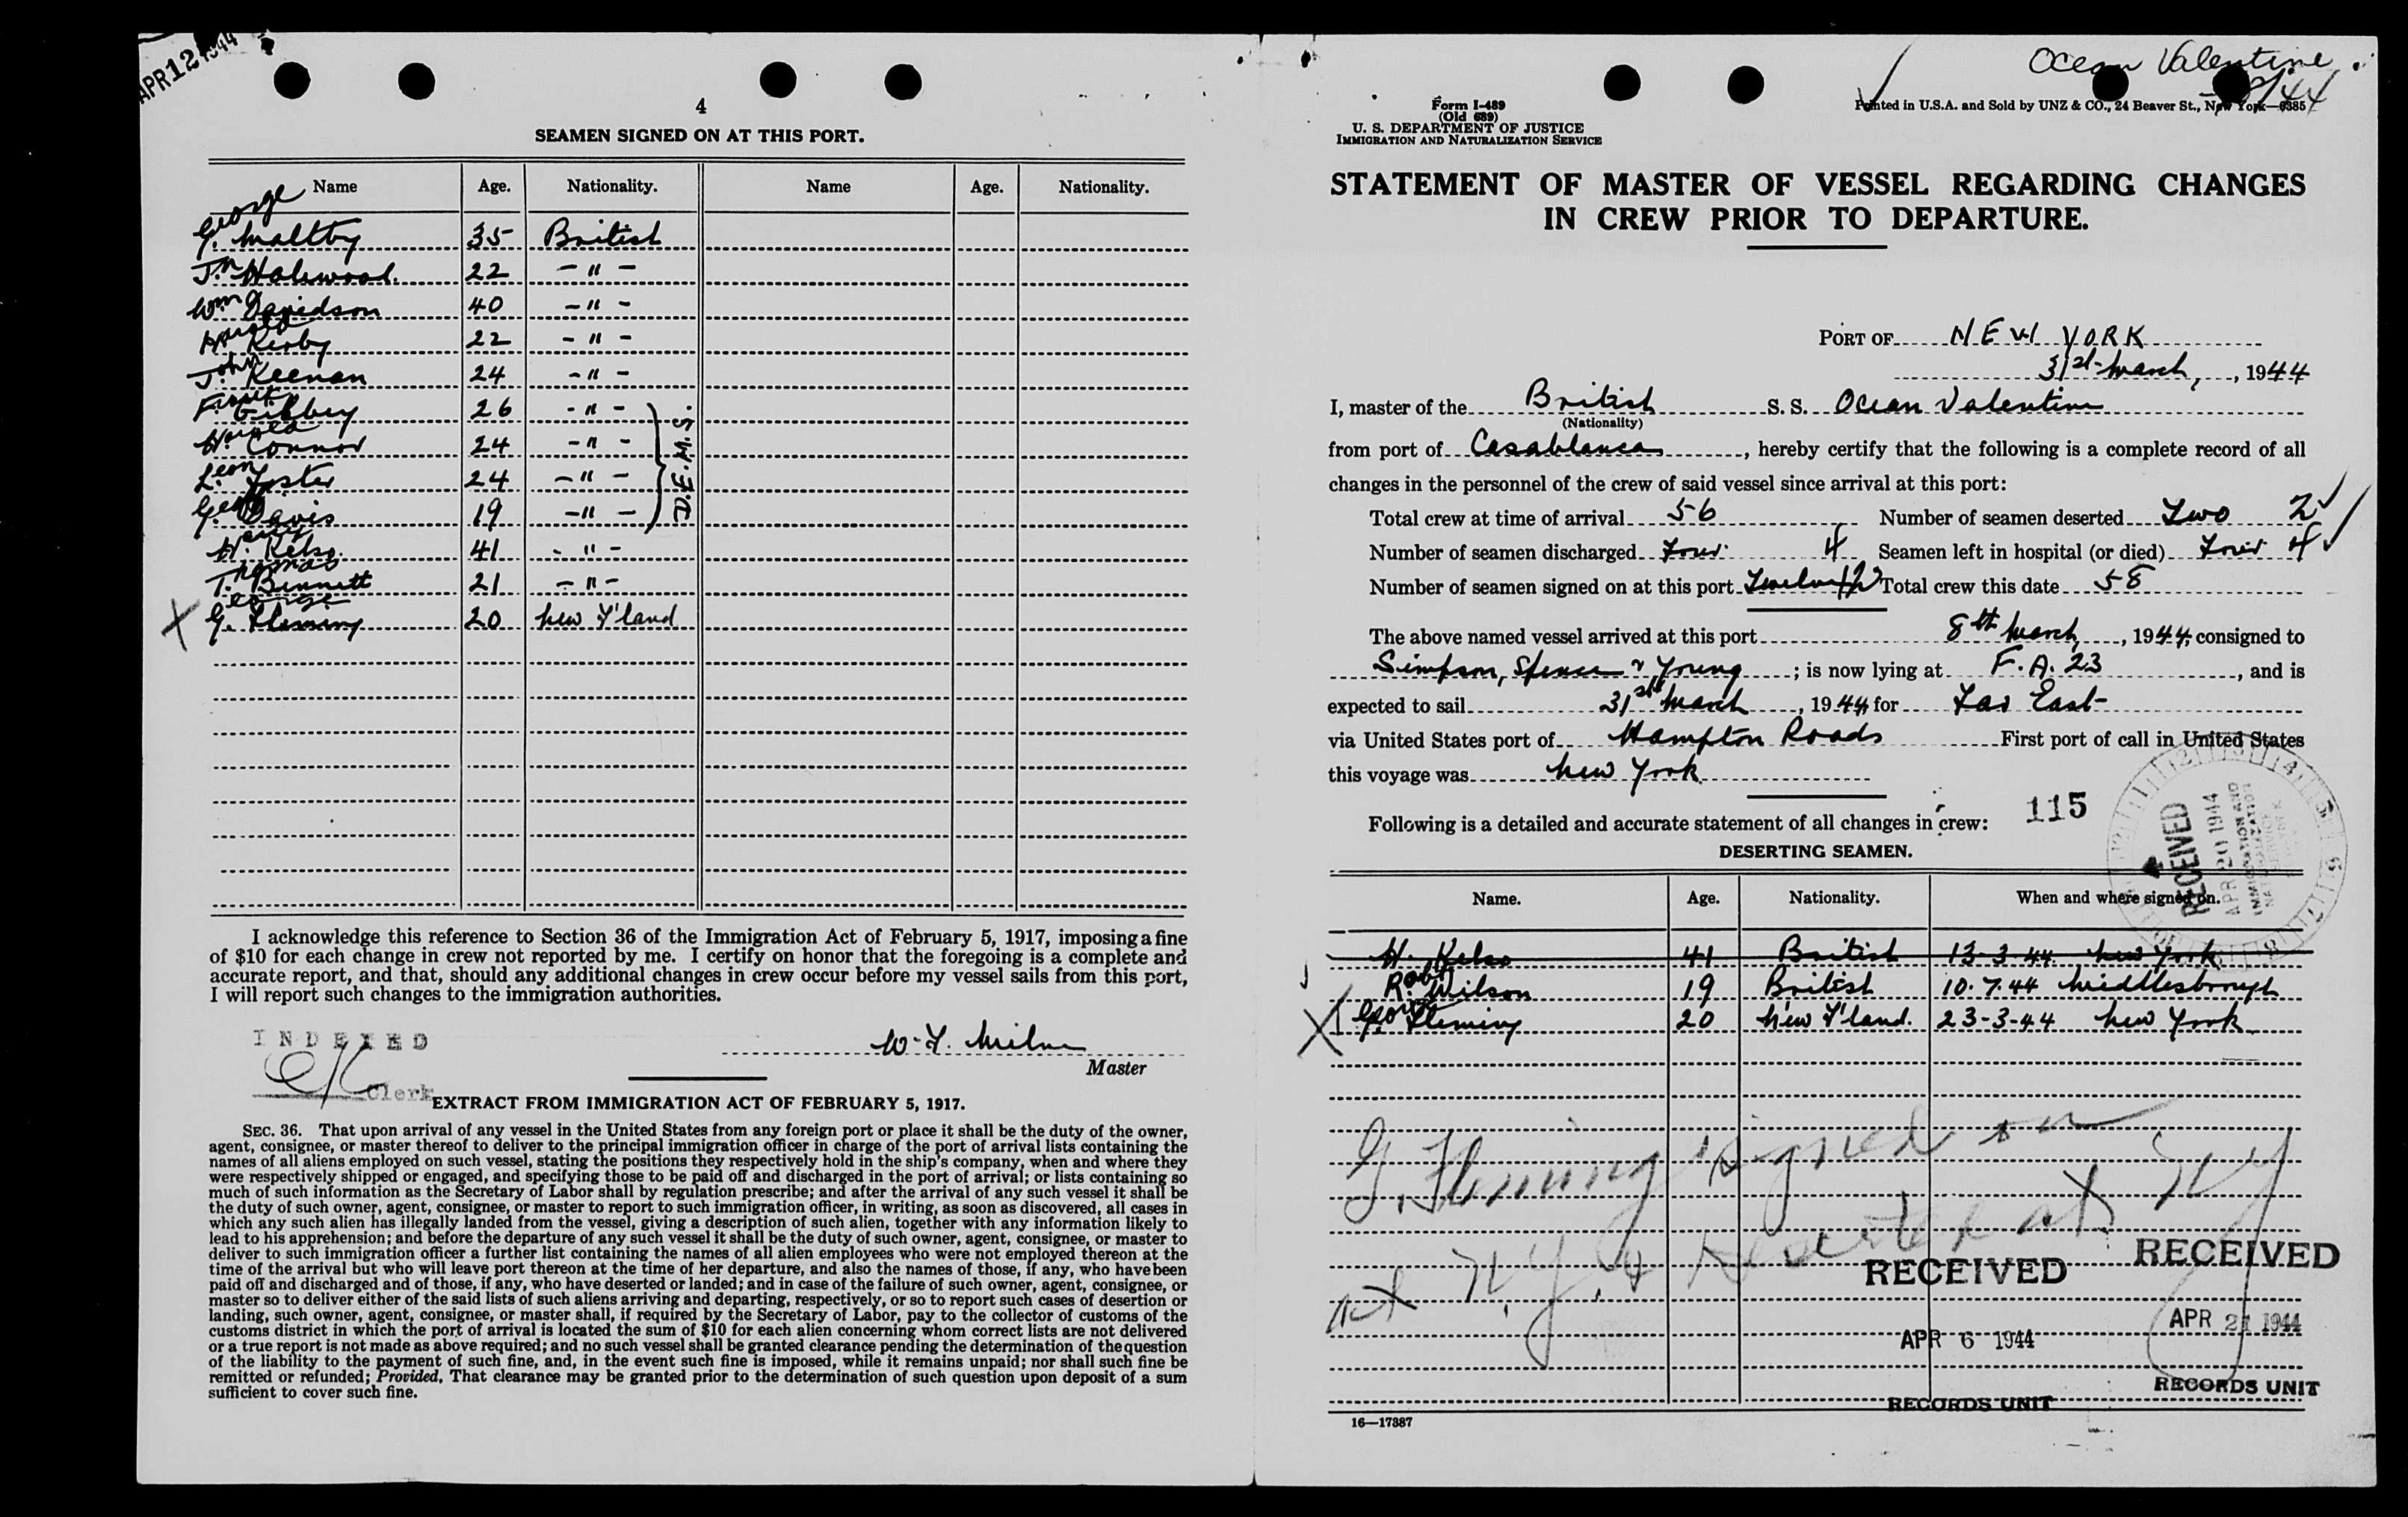 APR 12 1944
4
SEAMEN SIGNED ON AT THIS PORT.
Name Age. Nationality. Name Age. Nationality.
George
G. Maltby 35 British
Jn Halewood. 22 - " -
Wm Davidson 40 - " -
Harold
H. Kerby 22 - " -
John
J. Keenan 24 - " -
F. Gibbey 26 - " -
Harold
H. Connor 24 - " -
Leon
L. Foster 24 - " -
G. Davis 19 - " -
D.E.M.S.
Harry
H. Kelso. 41 - " -
Thomas
T. Bennett 21 - " -
George
X G. Fleming 20 New F'land
I acknowledge this reference to Section 36 of the Immigration Act of February 5, 1917, imposing a fine
of $10 for each change in crew not reported by me. I certify on honor that the foregoing is a complete and
accurate report, and that, should any additional changes in crew occur before my vessel sails from this port,
I will report such changes to the immigration authorities.
INDEXED
Clerk
W. F. Milne
Master
EXTRACT FROM IMMIGRATION ACT OF FEBRUARY 5, 1917.
SEC. 36. That upon arrival of any vessel in the United States from any foreign port or place it shall be the duty of the owner,
agent, consignee, or master thereof to deliver to the principal immigration officer in charge of the port of arrival lists containing the
names of all aliens employed on such vessel, stating the positions they respectively hold in the ship's company, when and where they
were respectively shipped or engaged, and specifying those to be paid off and discharged in the port of arrival; or lists containing so
much of such information as the Secretary of Labor shall by regulation prescribe; and after the arrival of any such vessel it shall be
the duty of such owner, agent, consignee, or master to report to such immigration officer, in writing, as soon as discovered, all cases in
which any such alien has illegally landed from the vessel, giving a description of such alien, together with any information likely to
lead to his apprehension; and before the departure of any such vessel it shall be the duty of such owner, agent, consignee, or master to
deliver to such immigration officer a further list containing the names of all alien employees who were not employed thereon at the
time of the arrival but who will leave port thereon at the time of her departure, and also the names of those, if any, who have been
paid off and discharged and of those, if any, who have deserted or landed; and in case of the failure of such owner, agent, consignee, or
master so to deliver either of the said lists of such aliens arriving and departing, respectively, or so to report such cases of desertion or
landing, such owner, agent, consignee, or master shall, if required by the Secretary of Labor, pay to the collector of customs of the
customs district in which the port of arrival is located the sum of $10 for each alien concerning whom correct lists are not delivered
or a true report is not made as above required; and no such vessel shall be granted clearance pending the determination of the question
of the liability to the payment of such fine, and, in the event such fine is imposed, while it remains unpaid; nor shall such fine be
remitted or refunded; Provided, That clearance may be granted prior to the determination of such question upon deposit of a sum
sufficient to cover such fine.
Ocean Valentine
Form I-489
(Old 689)
U. S. DEPARTMENT OF JUSTICE
IMMIGRATION AND NATURALIZATION SERVICE
Printed in U.S.A. and Sold by UNZ & CO., 24 Beaver St., New York—6385
STATEMENT OF MASTER OF VESSEL REGARDING CHANGES
IN CREW PRIOR TO DEPARTURE.
PORT OF NEW YORK
31st March, , 1944
I, master of the British S. S. Ocean Valentine
(Nationality)
from port of Casablanca , hereby certify that the following is a complete record of all
changes in the personnel of the crew of said vessel since arrival at this port:
Total crew at time of arrival 56 Number of seamen deserted Two 2
Number of seamen discharged Four 4 Seamen left in hospital (or died) Four 4
Number of seamen signed on at this port Twelve 12 Total crew this date 58
The above named vessel arrived at this port 8th March, , 1944, consigned to
Simpson, Spence & Young ; is now lying at F. A. 23 , and is
expected to sail 31st March , 1944, for Far East
via United States port of Hampton Roads First port of call in United States
this voyage was New York
Following is a detailed and accurate statement of all changes in crew: 115
DESERTING SEAMEN.
RECEIVED
APR 20 1944
IMMIGRATION AND
Name. Age. Nationality. When and where signed on.
H. Kelso 41 British 13-3-44 New York
Robt
R. Wilson 19 British 10.7.44 Middlesbrough
George
X G. Fleming 20 New F'land. 23-3-44 New York
G. Fleming signed on
at N.Y. & Deserted at NY
RECEIVED
APR 6 1944
RECORDS UNIT
RECEIVED
APR 21 1944
RECORDS UNIT
16—17387